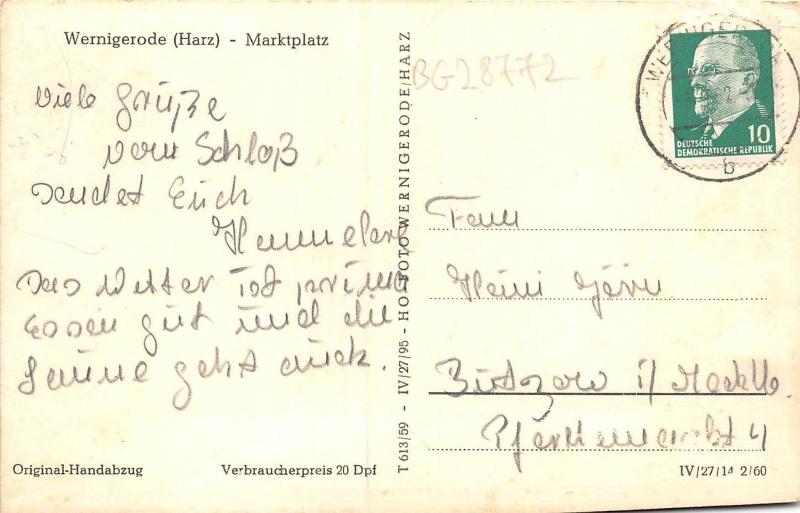 Wernigerode (Harz) - Marktplatz
Viele Grüße
vom Schloß
sendet Euch
Hannelore
Das Wetter ist prima
Essen gut und die
Laune geht auch.
Original-Handabzug
Verbraucherpreis 20 Dpf
T 613/59 - IV/27/95 - HOFFOTO WERNIGERODE/HARZ
BG28772
WERNIGERODE
b
10
DEUTSCHE
DEMOKRATISCHE REPUBLIK
Fam
Heini
Bützow i/ Meckl
4
IV/27/14 2/60